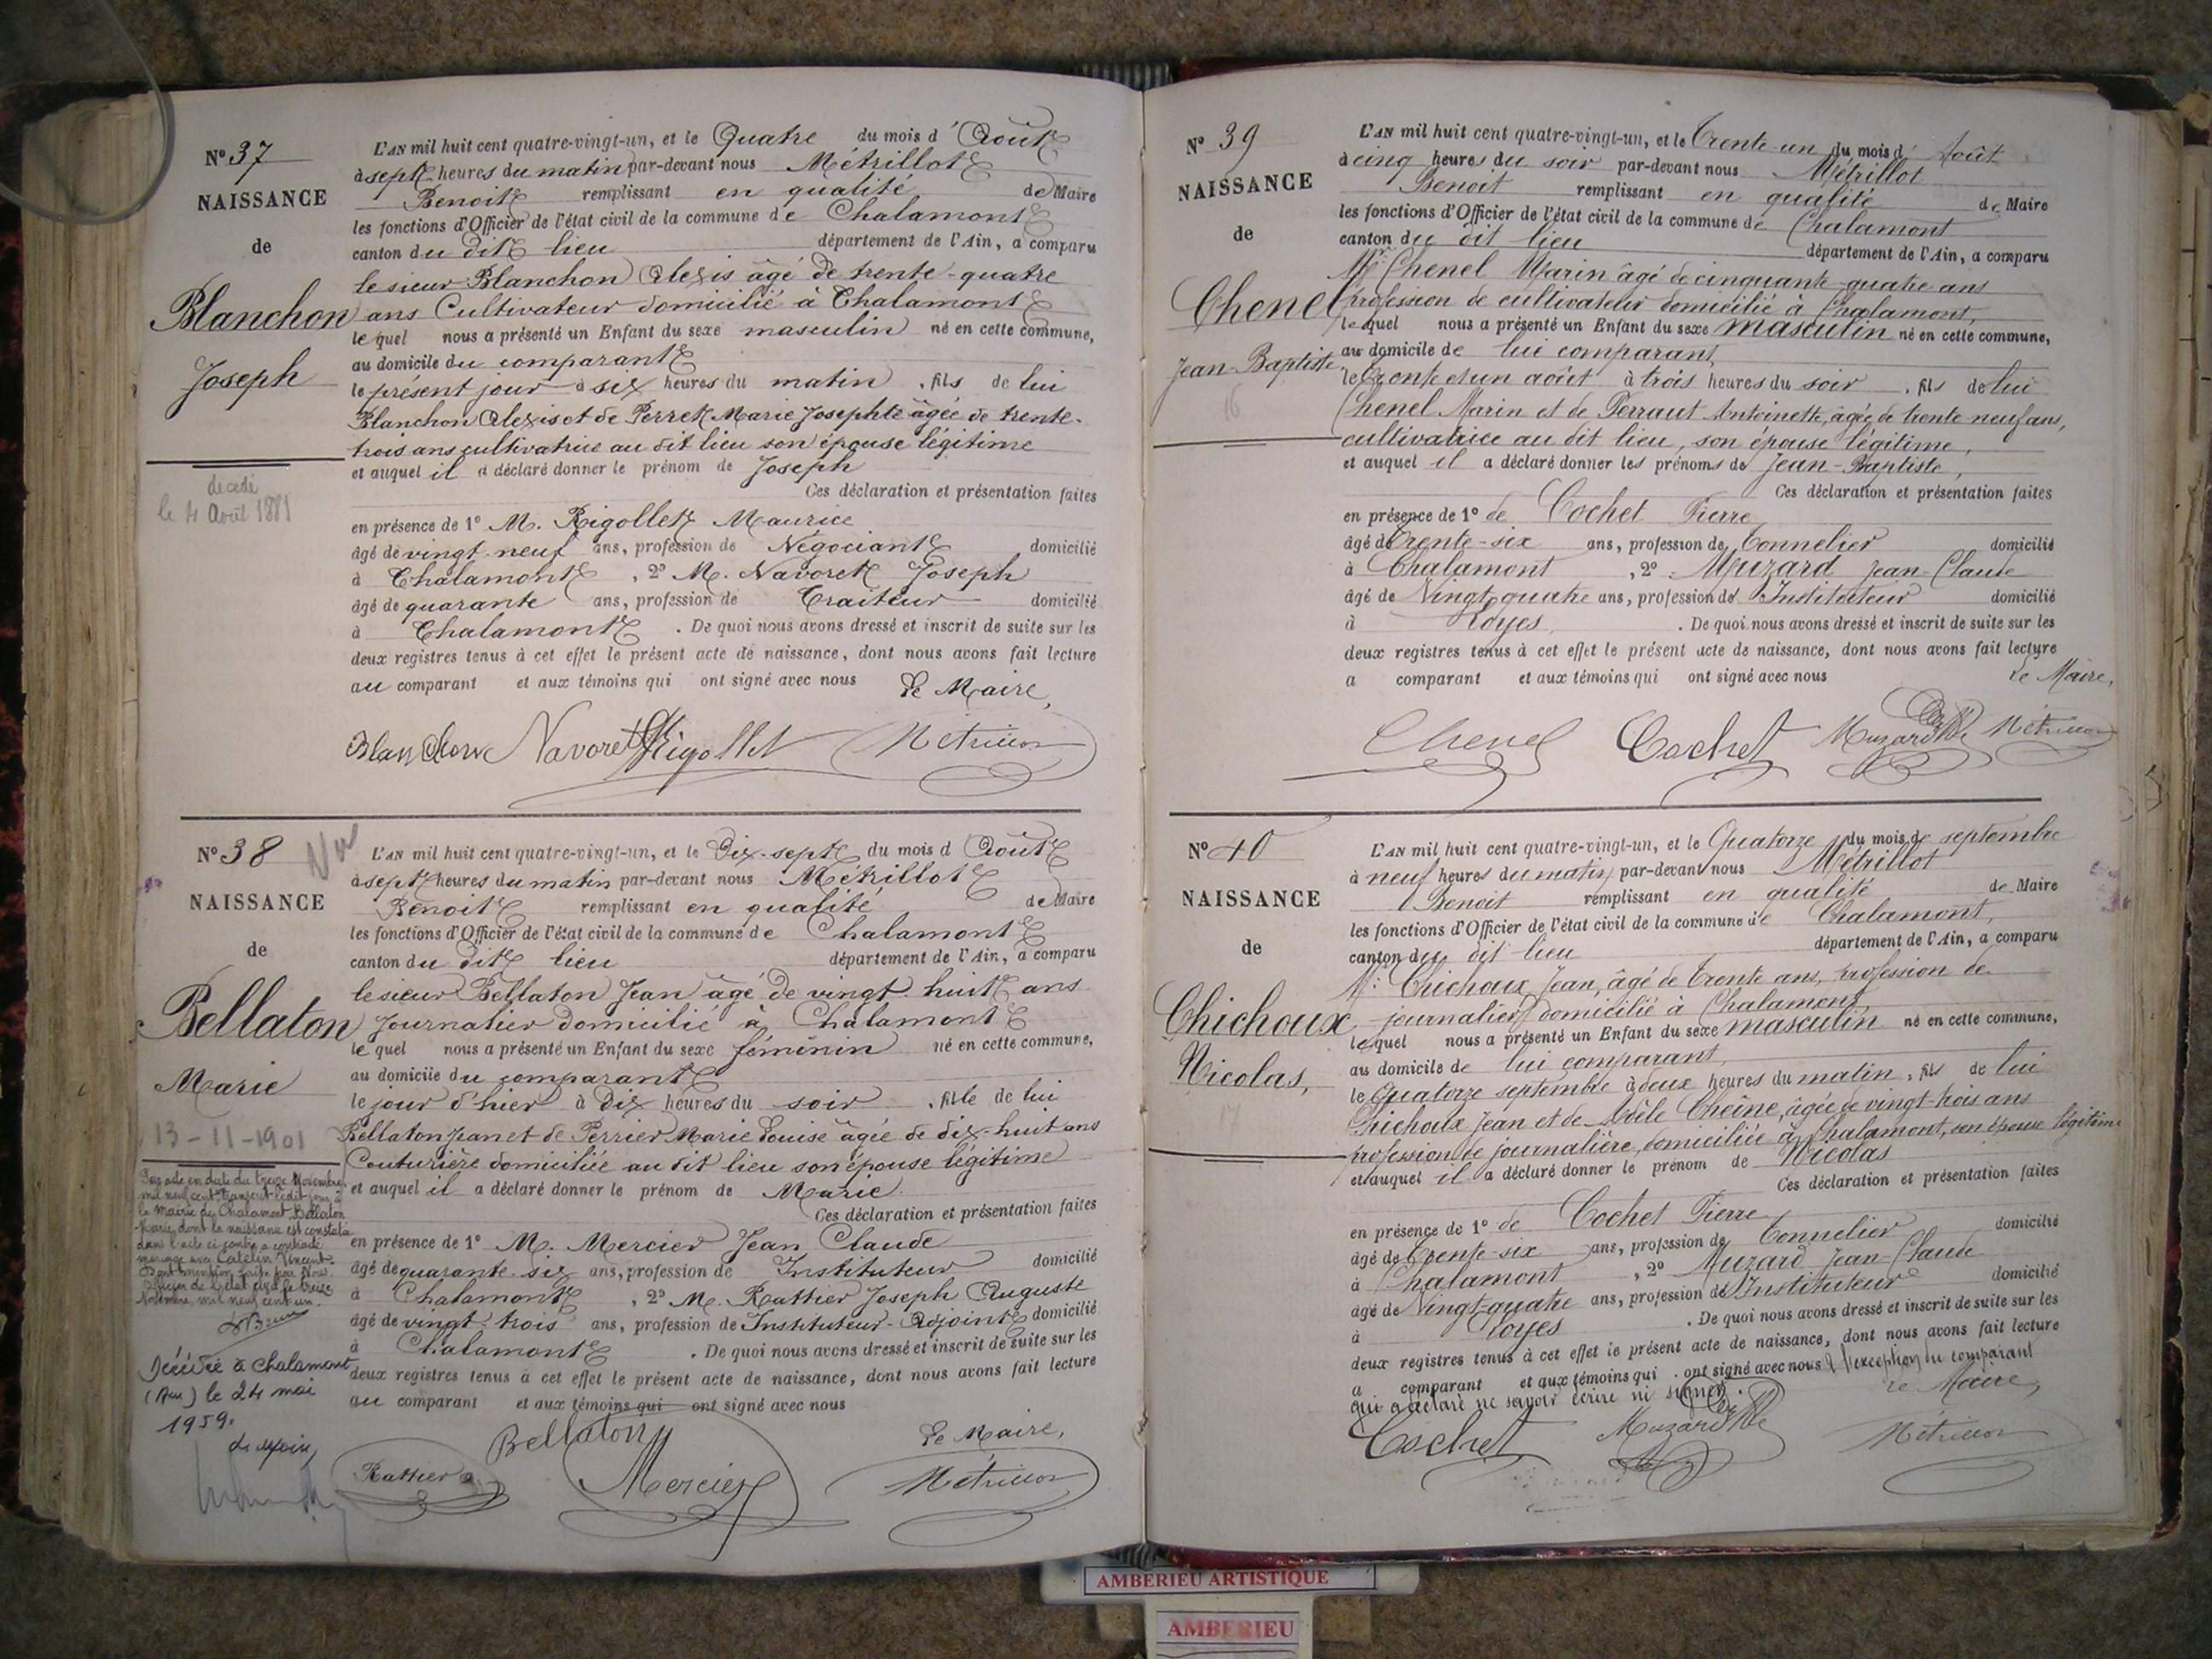 N° 37
NAISSANCE
de
Blanchon
Joseph
decedé
le 4 Août 1881
L'AN mil huit cent quatre-vingt-un, et le Quatre du mois d'Août
à sept heures du matin par-devant nous Métrillot
Benoit remplissant en qualité de Maire
les fonctions d'Officier de l'état civil de la commune de Chalamont
canton du dit lieu département de l'Ain, a comparu
le sieur Blanchon Alexis âgé de trente-quatre
ans Cultivateur domicilié à Chalamont
lequel nous a présenté un Enfant du sexe masculin né en cette commune,
au domicile du comparant
le présent jour à six heures du matin, fils de lui
Blanchon Alexis et de Perret Marie Josephte âgée de trente-
trois ans cultivatrice au dit lieu son épouse légitime
et auquel il a déclaré donner le prénom de Joseph
Ces déclaration et présentation faites
en présence de 1° M. Rigollet Maurice
âgé de vingt-neuf ans, profession de Négociant domicilié
à Chalamont, 2° M. Navoret Joseph
âgé de quarante ans, profession de Traiteur domicilié
à Chalamont. De quoi nous avons dressé et inscrit de suite sur les
deux registres tenus à cet effet le présent acte de naissance, dont nous avons fait lecture
au comparant et aux témoins qui ont signé avec nous Le Maire,
Blanchon Navoret Rigollet Métrillot
N° 38
NAISSANCE
de
Bellaton
Marie
13-11-1901
Par acte en date du treize Novembre
mil neuf cent un transcrit ledit jour à
la Mairie de Chalamont Bellaton
Marie dont la naissance est constatée
dans l'acte ci-contre a contracté
mariage avec Catelin Vincent.
Dont mention faite par Nous
Officier de l'état civil le treize
Novembre mil neuf cent un.
Décédée à Chalamont
(Ain) le 24 mai
1959.
L'AN mil huit cent quatre-vingt-un, et le Dix-sept du mois d'Août
à sept heures du matin par-devant nous Métrillot
Benoit remplissant en qualité de Maire
les fonctions d'Officier de l'état civil de la commune de Chalamont
canton du dit lieu département de l'Ain, a comparu
le sieur Bellaton Jean âgé de vingt-huit ans
Journalier domicilié à Chalamont
lequel nous a présenté un Enfant du sexe féminin né en cette commune,
au domicile du comparant
le jour d'hier à Dix heures du soir, fille de lui
Bellaton Jean et de Perrier Marie Louise âgée de dix-huit ans
Couturière domiciliée au dit lieu son épouse légitime
et auquel il a déclaré donner le prénom de Marie
Ces déclaration et présentation faites
en présence de 1° M. Mercier Jean Claude
âgé de quarante-six ans, profession de Instituteur domicilié
à Chalamont, 2° M. Rattier Joseph Auguste
âgé de vingt trois ans, profession de Instituteur-Adjoint domicilié
à Chalamont. De quoi nous avons dressé et inscrit de suite sur les
deux registres tenus à cet effet le présent acte de naissance, dont nous avons fait lecture
au comparant et aux témoins qui ont signé avec nous
Le Maire,
Bellaton
Rattier Mercier Métrillot
N° 39
NAISSANCE
de
Chenel
Jean-Baptiste
16
L'AN mil huit cent quatre-vingt-un, et le Trente-un du mois d'Août
à cinq heures du soir par-devant nous Métrillot
Benoit remplissant en qualité de Maire
les fonctions d'Officier de l'état civil de la commune de Chalamont
canton du dit lieu département de l'Ain, a comparu
Mr. Chenel Marin âgé de cinquante-quatre ans
profession de cultivateur domicilié à Chalamont,
lequel nous a présenté un Enfant du sexe masculin né en cette commune,
au domicile de lui comparant,
le Trente et un août à trois heures du soir, fils de lui
Chenel Marin et de Perraut Antoinette, âgée de trente neuf ans,
cultivatrice au dit lieu, son épouse légitime,
et auquel il a déclaré donner les prénoms de Jean-Baptiste,
Ces déclaration et présentation faites
en présence de 1° de Cochet Pierre
âgé de Trente-six ans, profession de Tonnelier domicilié
à Chalamont, 2° Muzard Jean-Claude
âgé de Vingt-quatre ans, profession d'Instituteur domicilié
à Loyes. De quoi nous avons dressé et inscrit de suite sur les
deux registres tenus à cet effet le présent acte de naissance, dont nous avons fait lecture
a comparant et aux témoins qui ont signé avec nous Le Maire,
Chenel Cochet Muzard Métrillot
N° 40
NAISSANCE
de
Chichoux
Nicolas,
17
L'AN mil huit cent quatre-vingt-un, et le Quatorze du mois de septembre
à neuf heures du matin par-devant nous Métrillot
Benoit remplissant en qualité de Maire
les fonctions d'Officier de l'état civil de la commune de Chalamont,
canton du dit lieu département de l'Ain, a comparu
Mr. Chichoux Jean, âgé de trente ans, profession de
journalier, domicilié à Chalamont,
lequel nous a présenté un Enfant du sexe masculin né en cette commune,
au domicile de lui comparant,
le Quatorze septembre à deux heures du matin, fils de lui
Chichoux Jean et de Adèle Cheîne, âgée de vingt trois ans
profession de journalière, domiciliée à Chalamont, son épouse légitime
et auquel il a déclaré donner le prénom de Nicolas
Ces déclaration et présentation faites
en présence de 1° de Cochet Pierre
âgé de Trente-six ans, profession de Tonnelier domicilié
à Chalamont, 2° Muzard Jean-Claude
âgé de Vingt-quatre ans, profession d'Instituteur domicilié
à Loyes. De quoi nous avons dressé et inscrit de suite sur les
deux registres tenus à cet effet le présent acte de naissance, dont nous avons fait lecture
a comparant et aux témoins qui ont signé avec nous à l'exception du comparant
qui a déclaré ne savoir écrire ni signer. Le Maire,
Cochet Muzard Métrillot
AMBERIEU ARTISTIQUE
AMBERIEU